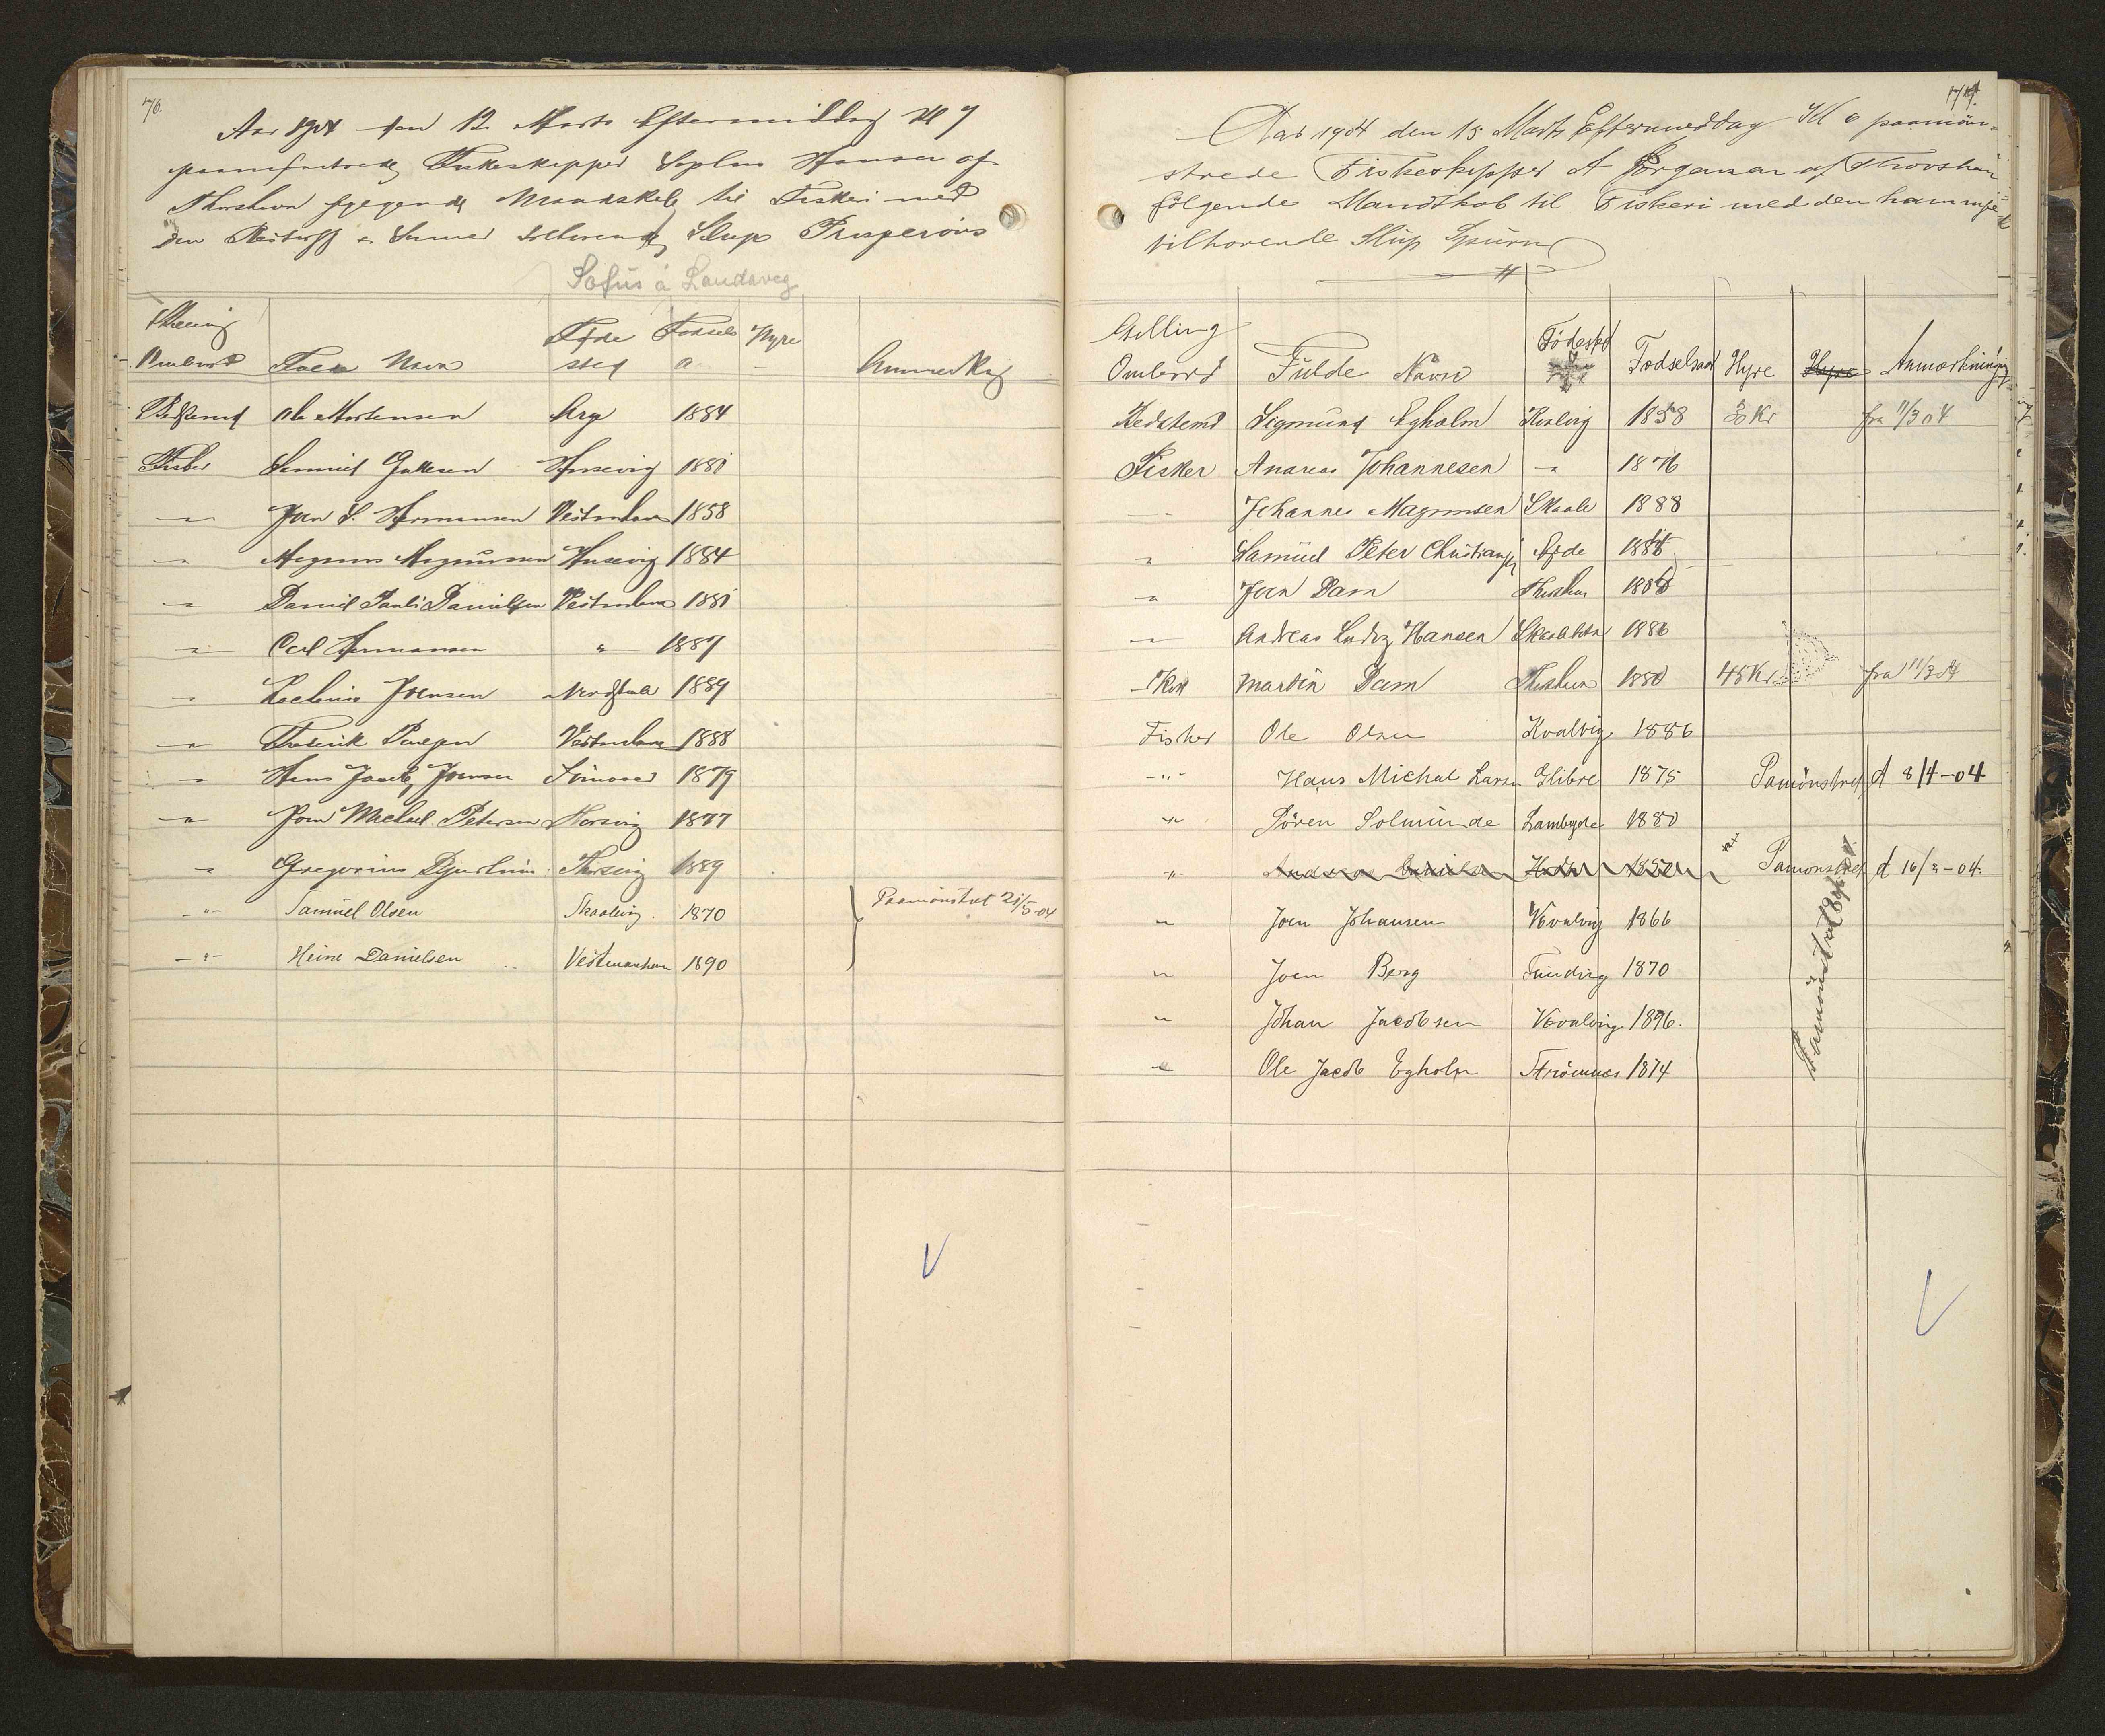 76.
Aar 1904 den 12 Marts Eftermiddag Kl 7
paamønstrede Fiskeskipper Sophus Hansen af
Thorshavn følgende Mandskab til Fiskeri med
den tilhørende Slup Prosperóus
Sofus á Landaveg
Stilling
Ombord Fulde Navn Føde sted Fødsels a Hyre Anmerkng
Bedstemd Ole Mortensen Arge 1884
Fisker Samuel Husevig 1881
-"- Joen S. Hermansen Vestmanhavn 1858
-"- Magnus Magnussen Husevig 1884
-"- Daniel Pauli Danielsen Vestmanhavn 1881
-"- Carl Hermansen " 1887
-"- Joensen Nordskale 1889
-"- Frederik Poulsen Vestmanhavn 1888
-"- Hans Jacob Joensen 1879
-"- Joen Michael Petersen Thorsvig 1877
-"- Gregorius Djurhuus Thorsvig 1889
-"- Samuel Olsen Skaalevig. 1870 Paamönstret 21/5-04
-"- Heine Danielsen Vestmanhavn 1890
77.
Aar 1904 den 15 Marts Eftermeddag Kl 6 paamön-
strede Fiskeskipper A Jørgensen af Thorshavn
fölgende Mandskab til Fiskeri med den ham
tilhorende Slup Spurn
Stilling
Ombord Fulde Navne Födested Fodselsaar Hyre Hyre Anmærkninger
Bedstemd Sigmund Egholm Kvalvig 1858 30 Kr fra 11/3 04
Fisker Anareas Johannesen -"- 1876
-"- Johannes Magnussen Skaale 1888
-"- Samuel Peter Christiansen Ejde 1886
-"- Joen Dam Thorshavn 1880
-"- Andreas Ludvig Hansen Skaalebotn 1886
Kok Martin Dam Thorshavn 1880 45 Kr fra 11/3 04
Fisker Ole Olsen Kvalvig 1886
-"- Hans Michal Larsen Glibre 1875 Pamönstret d 8/4-04
-"- Sören Solmunde Lambgde 1880
-"- Andreas 1850 Pamonstret d 16/3-04.
-"- Joen Johansen Kvalvig 1866
-"- Joen Berg Funding 1870
-"- Johan Jacobsen Kvalvig 1896.
-"- Ole Jacob Egholm Strömnes 1874
Pamönstret